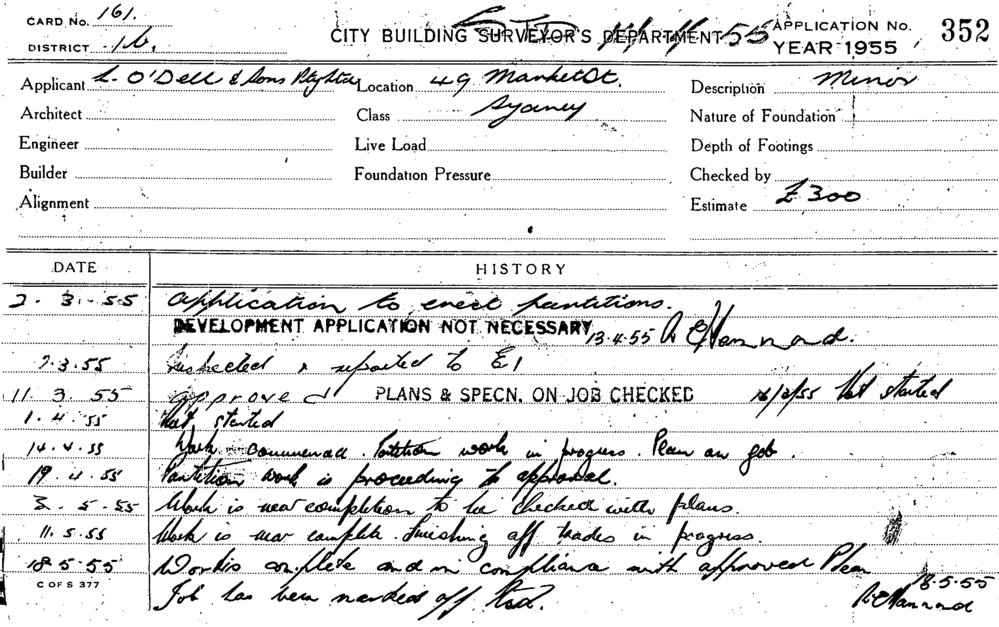 CARD No. 161.
DISTRICT 1b.
CITY BUILDING SURVEYOR'S DEPARTMENT
APPLICATION No. 352
YEAR 1955
Applicant L. O'Dell & Sons Pty Ltd Location 49 Market St. Description Minor
Architect Class Sydney Nature of Foundation
Engineer Live Load Depth of Footings
Builder Foundation Pressure Checked by
Alignment Estimate £300
DATE HISTORY
2. 3. 55 Application to erect partitions.
DEVELOPMENT APPLICATION NOT NECESSARY 13.4.55
7.3.55 Inspected & reported to E1
11. 3. 55 approved PLANS & SPECN. ON JOB CHECKED 55 Not started
1. 4. 55 Not started
14.4.55 Work commenced. Partition work in progress. Plan on job.
19. 4. 55 Partition work is proceeding to approval.
3. 5. 55 Work is near completion to be checked with plans.
11. 5. 55 Work is near complete. Finishing off trades in progress.
18. 5. 55 Work is complete and in compliance with approved Plan
C OF S 377
Job has been marked off 18.5.55